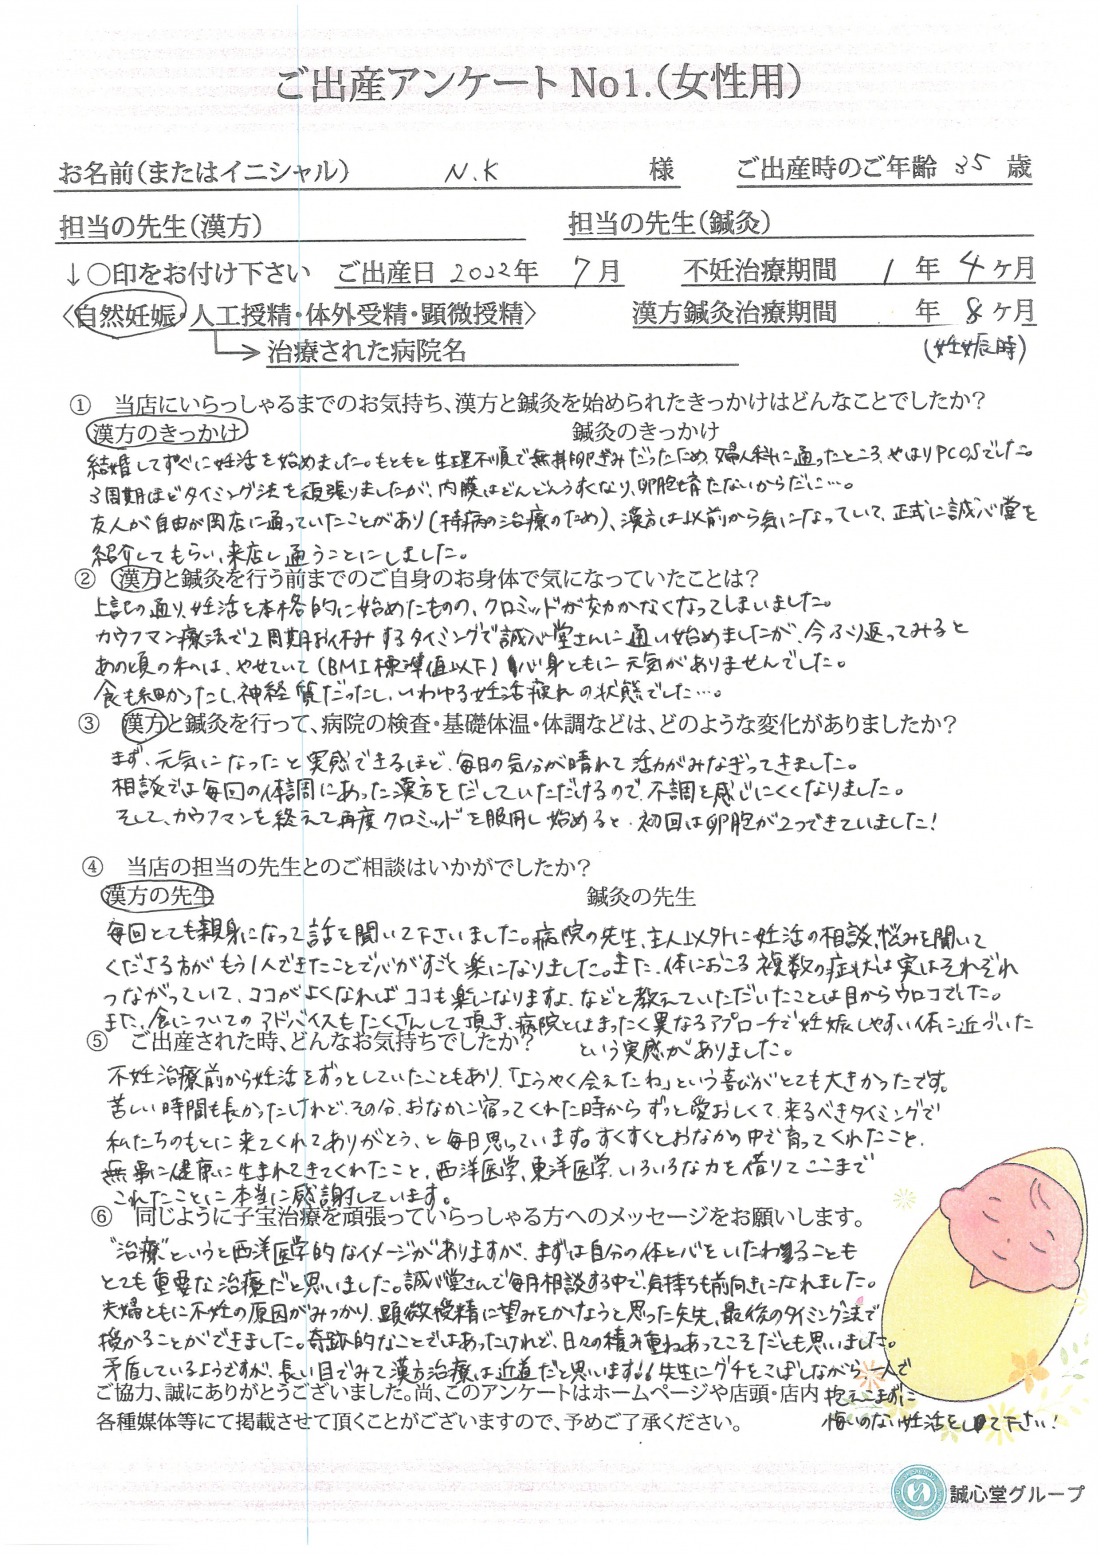 ご出産アンケートNo1（女性用）
お名前（またはイニシャル） N.K 様 ご出産時のご年齢 35 歳
担当の先生（漢方） 担当の先生（鍼灸）
↓〇印をお付け下さい ご出産日 2022年 7月 不妊治療期間 1年 4ヶ月
〈自然妊娠・人工授精・体外受精・顕微授精〉 漢方鍼灸治療期間 年 8ヶ月
治療された病院名 (妊娠時)
① 当店にいらっしゃるまでのお気持ち、漢方と鍼灸を始められたきっかけはどんなことでしたか？
漢方のきっかけ 鍼灸のきっかけ
結婚してすぐに妊活を始めました。もともと生理不順で無排卵ぎみだったため、婦人科に通ったところ、やはりPCOSでした。
3周期ほどタイミング法を頑張りましたが、内膜はどんどんうすくなり、卵胞も育たないからだに…。
友人が自由が岡店に通っていたことがあり(持病の治療のため)、漢方は以前から気になっていて、正式に誠心堂を
紹介してもらい、来店し通うことにしました。
② 漢方と鍼灸を行う前までのご自身のお身体で気になっていたことは？
上記の通り、妊活を本格的に始めたものの、クロミッドが効かなくなってしまいました。
カウフマン療法で2周期お休みするタイミングで誠心堂さんに通い始めましたが、今ふり返ってみると
あの頃の私は、やせていて(BMI標準値以下)心身ともに元気がありませんでした。
食も細かったし、神経質だったし、いわゆる妊活疲れの状態でした…。
③ 漢方と鍼灸を行って、病院の検査・基礎体温・体調などは、どのような変化がありましたか？
まず、元気になったと実感できるほど、毎日の気分が晴れて活力がみなぎってきました。
相談では毎回の体調にあった漢方をだしていただけるので、不調を感じにくくなりました。
そして、カウフマンを終えて再度クロミッドを服用し始めると、初回は卵胞が2つできていました！
④ 当店の担当の先生とのご相談はいかがでしたか？
漢方の先生 鍼灸の先生
毎回とても親身になって話を聞いて下さいました。病院の先生、主人以外に妊活の相談、悩みを聞いて
くださる方がもう1人できたことで心がすごく楽になりました。また、体におこる複数の症状は実はそれぞれ
つながっていて、ココがよくなればココも楽になりますよ、などと教えていただいたことは目からウロコでした。
また、食についてのアドバイスもたくさんして頂き、病院とはまったく異なるアプローチで妊娠しやすい体に近づいた
という実感がありました。
⑤ ご出産された時、どんなお気持ちでしたか？
不妊治療前から妊活をずっとしていたこともあり、「ようやく会えたね」という喜びがとても大きかったです。
苦しい時間も長かったけれど、その分、おなかに宿ってくれた時からずっと愛おしくて、来るべきタイミングで
私たちのもとに来てくれてありがとう、と毎日思っています。すくすくとおなかの中で育ってくれたこと、
無事に健康に生まれてきてくれたこと、西洋医学、東洋医学、いろいろな力を借りてここまで
これたことに本当に感謝しています。
⑥ 同じように子宝治療を頑張っていらっしゃる方へのメッセージをお願いします。
"治療"というと西洋医学的なイメージがありますが、まずは自分の体と心をいたわることも
とても重要な治療だと思いました。誠心堂さんで毎月相談する中で、気持ちも前向きになれました。
夫婦ともに不妊の原因がみつかり、顕微授精に望みをかけようと思った矢先、最後のタイミング法で
授かることができました。奇跡的なことではあったけれど、日々の積み重ねあってこそだとも思いました。
矛盾しているようですが、長い目でみて漢方治療は近道だと思います!! 先生にグチをこぼしながら一人で
抱えこまずに
悔いのない妊活をして下さい！
ご協力、誠にありがとうございました。尚、このアンケートはホームページや店頭・店内
各種媒体等にて掲載させて頂くことがございますので、予めご了承ください。
誠心堂グループ